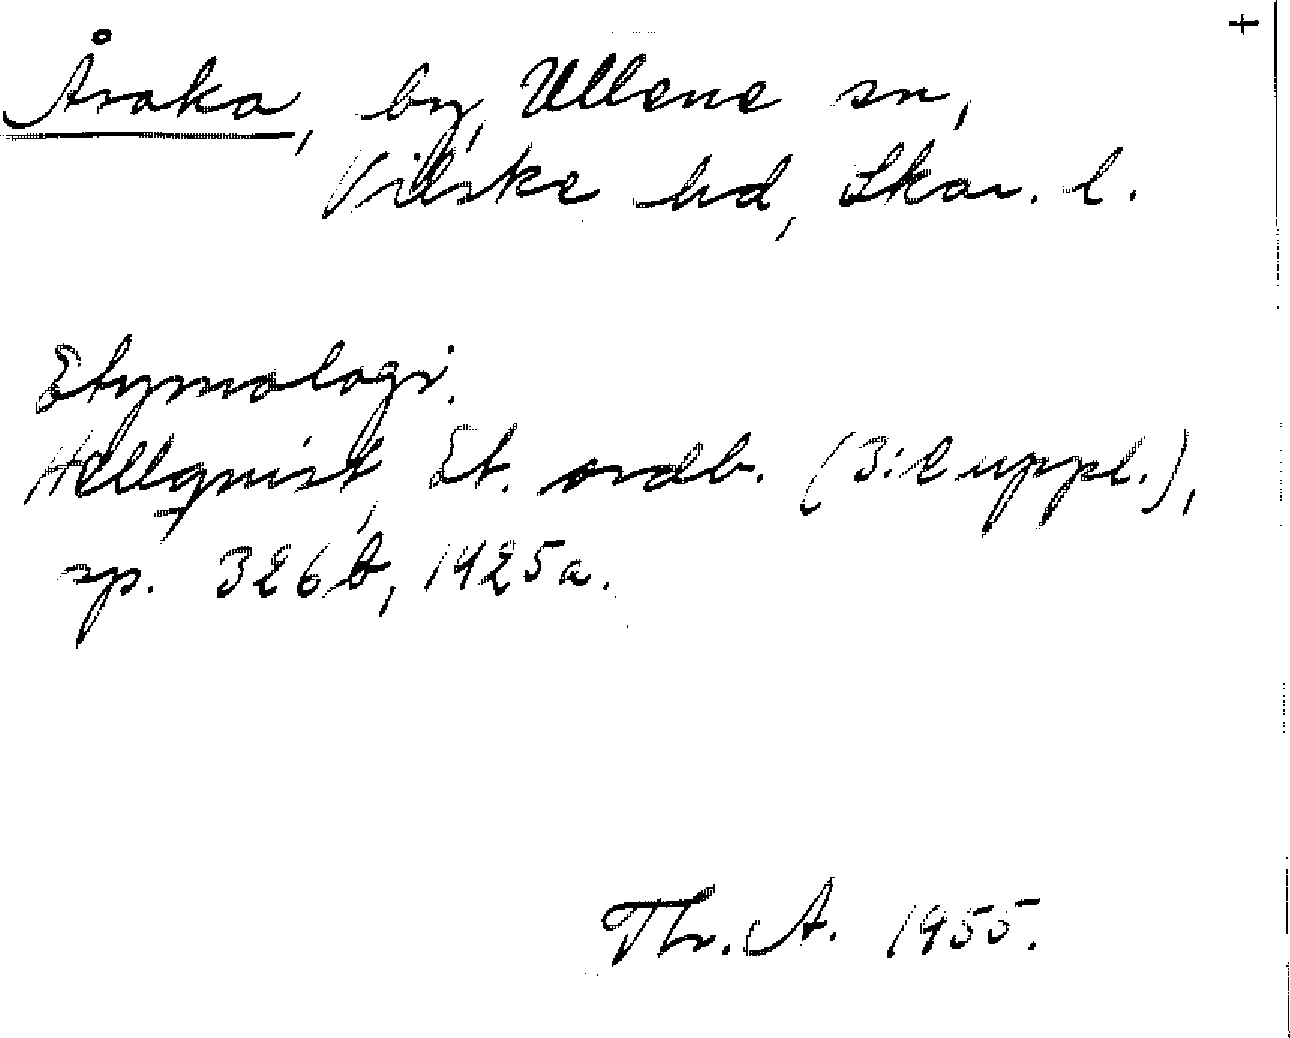 +
Åraka, by, Ullene sn,
Vilske hd, Skar. l.
Etymologi.
Hellquist, Et. ordb. (3:e uppl.),
sp. 326b, 1425a.
Th. A. 1955.